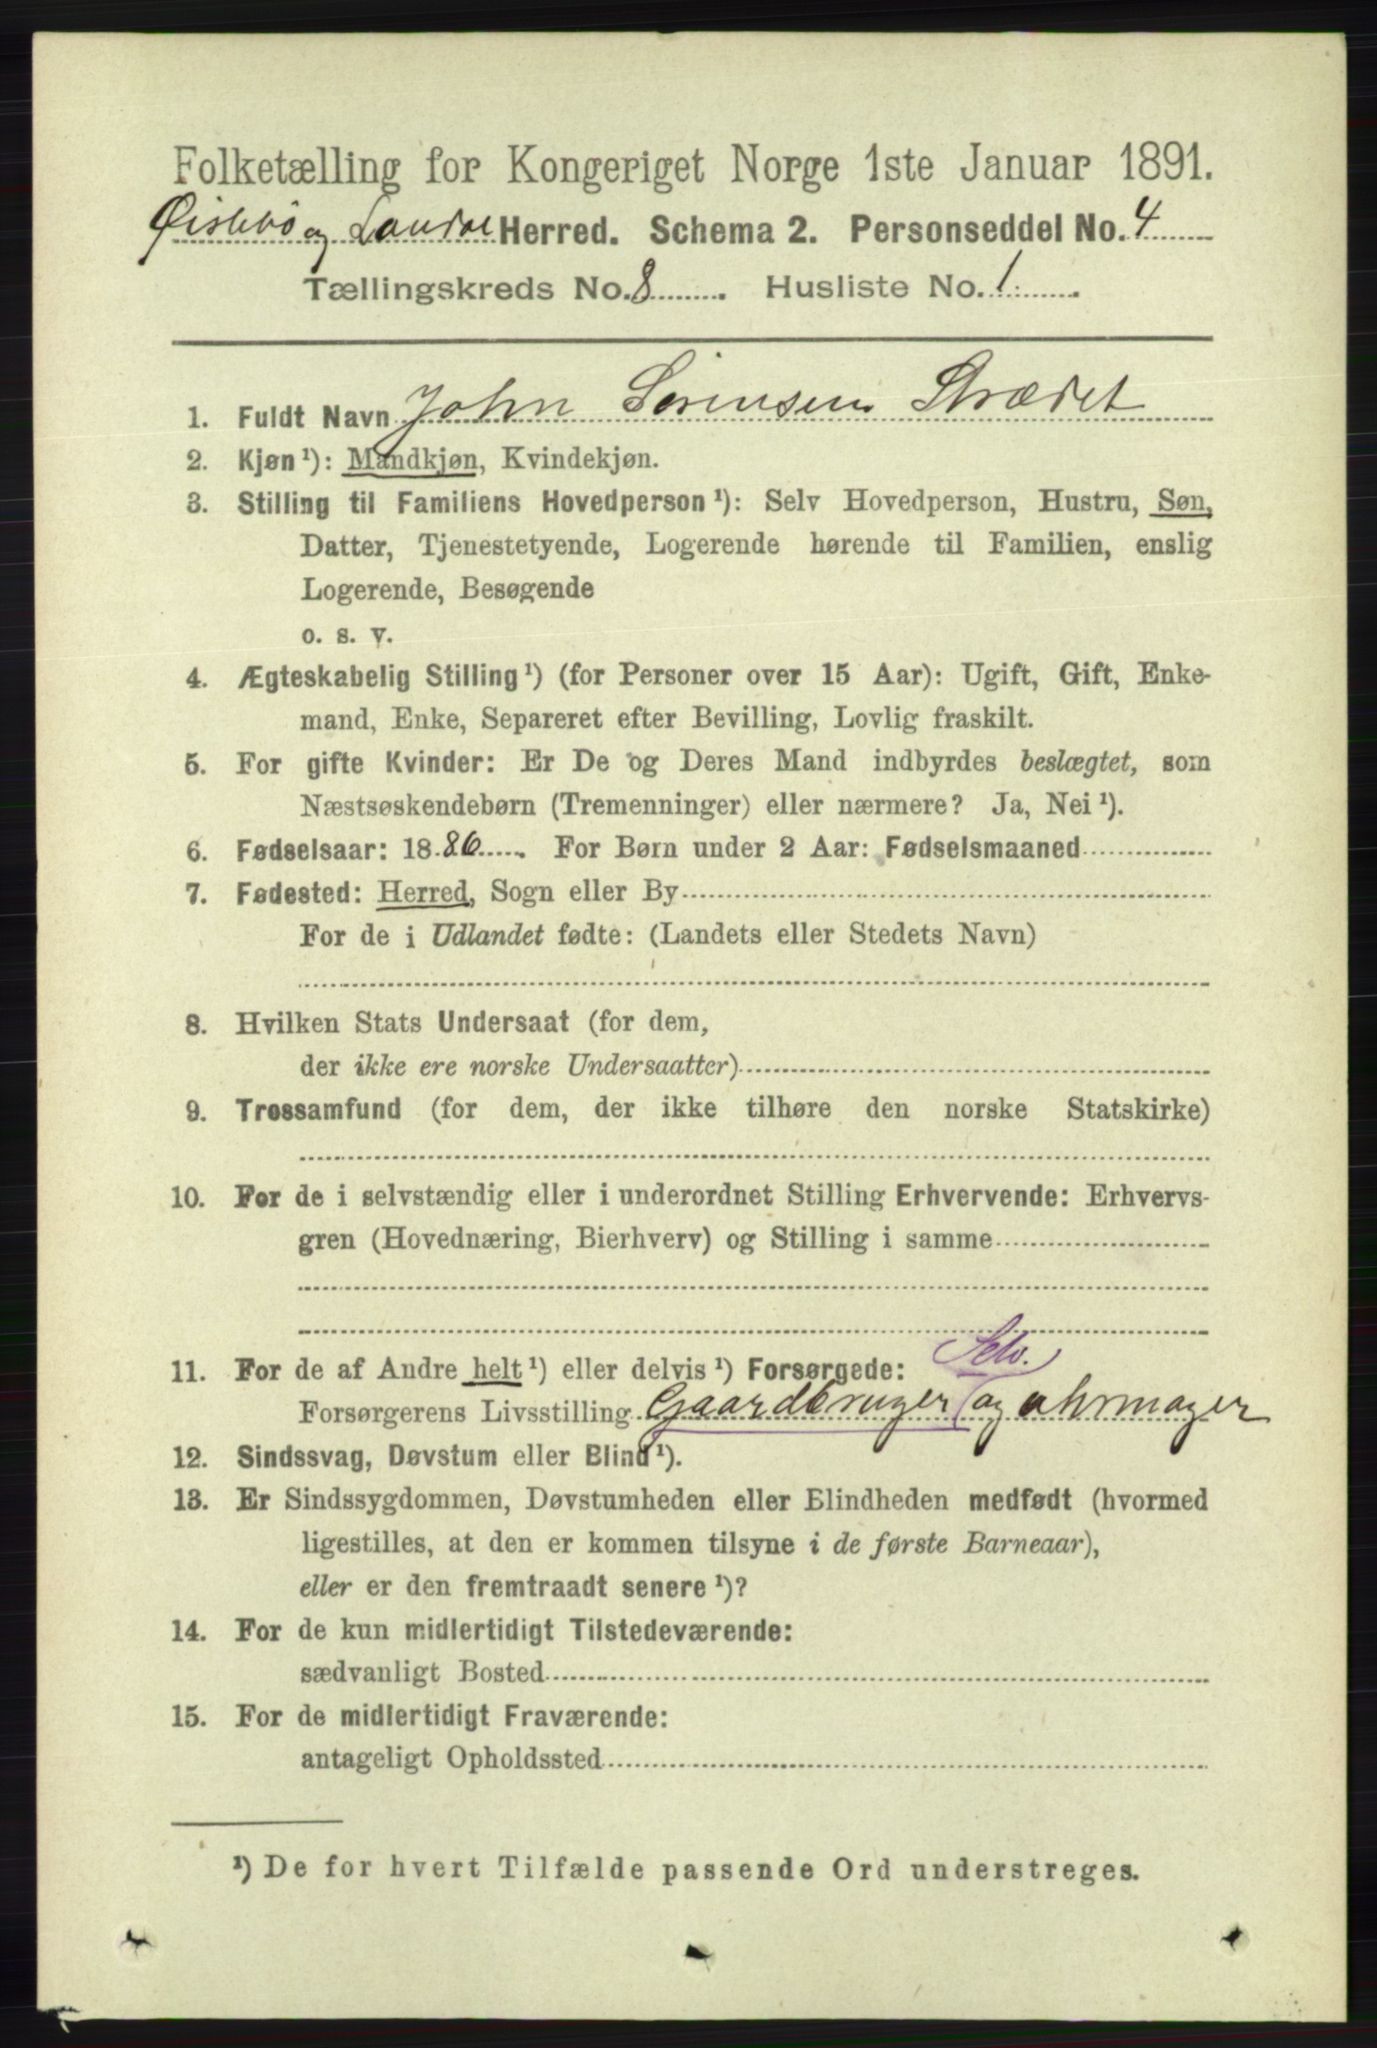 Folketælling for Kongeriget Norge 1ste Januar 1891.
Øislebø og Laudal Herred. Schema 2. Personseddel No. 4
Tællingskreds No. 8. Husliste No. 1.
1. Fuldt Navn John Sørensen Strædet
2. Kjøn¹): Mandkjøn, Kvindekjøn.
3. Stilling til Familiens Hovedperson¹): Selv Hovedperson, Hustru, Søn,
Datter, Tjenestetyende, Logerende hørende til Familien, enslig
Logerende, Besøgende
o. s. v.
4. Ægteskabelig Stilling¹) (for Personer over 15 Aar): Ugift, Gift, Enke-
mand, Enke, Separeret efter Bevilling, Lovlig fraskilt.
5. For gifte Kvinder: Er De og Deres Mand indbyrdes beslægtet, som
Næstsøskendebørn (Tremenninger) eller nærmere? Ja, Nei¹).
6. Fødselsaar: 1886. For Børn under 2 Aar: Fødselsmaaned
7. Fødested: Herred, Sogn eller By
For de i Udlandet fødte: (Landets eller Stedets Navn)
8. Hvilken Stats Undersaat (for dem,
der ikke ere norske Undersaatter)
9. Trossamfund (for dem, der ikke tilhøre den norske Statskirke)
10. For de i selvstændig eller i underordnet Stilling Erhvervende: Erhvervs-
gren (Hovednæring, Bierhverv) og Stilling i samme
Selv.
11. For de af Andre helt¹) eller delvis¹) Forsørgede:
Forsørgerens Livsstilling Gaardbruger og uhrmager
12. Sindssvag, Døvstum eller Blind¹).
13. Er Sindssygdommen, Døvstumheden eller Blindheden medfødt (hvormed
ligestilles, at den er kommen tilsyne i de første Barneaar),
eller er den fremtraadt senere¹)?
14. For de kun midlertidigt Tilstedeværende:
sædvanligt Bosted
15. For de midlertidigt Fraværende:
antageligt Opholdssted
¹) De for hvert Tilfælde passende Ord understreges.